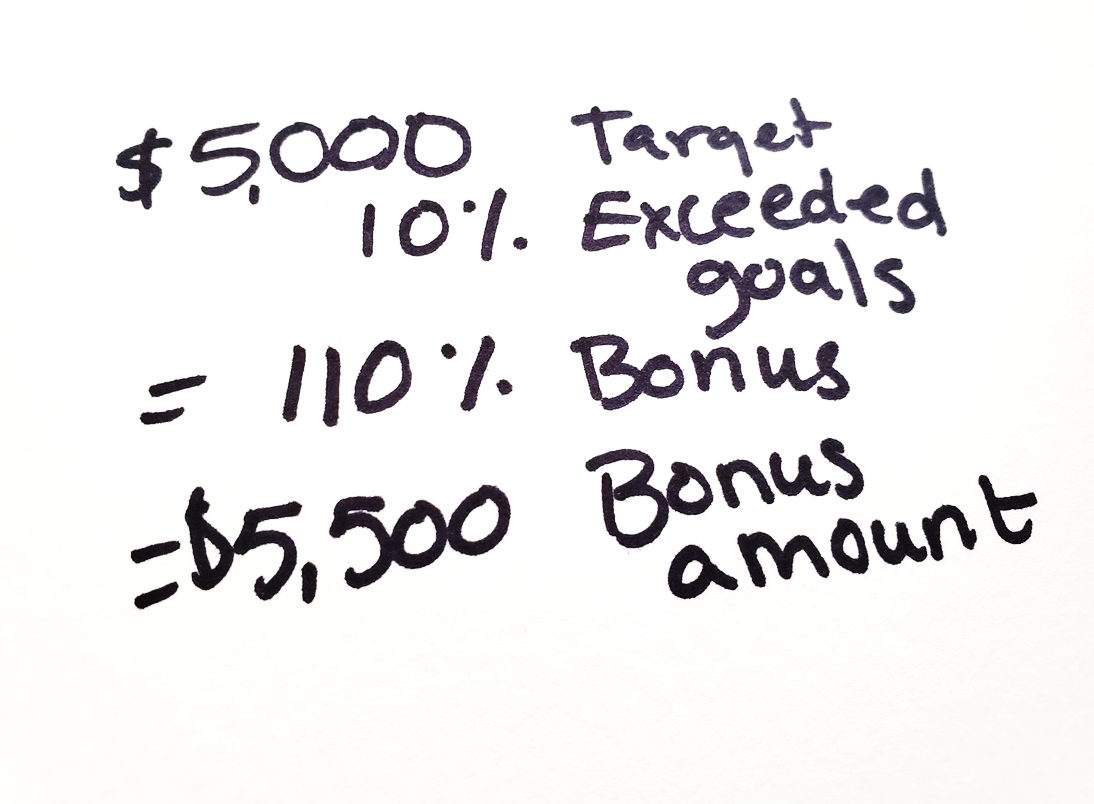 $5,000 Target
10% Exceeded
goals
= 110% Bonus
=$5,500 Bonus
amount